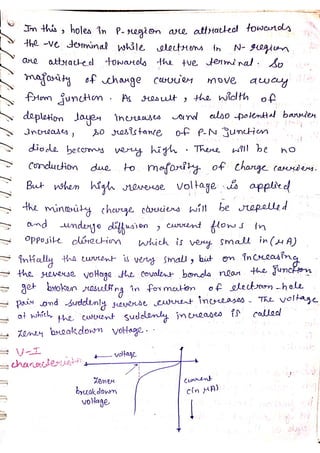 In this, holes in P-region are attracted towards
the -ve terminal while electrons in N-region
are attracted towards the +ve terminal. So
majority of charge carrier move away
from junction. As result, the width of
depletion layer increases and also potential barrier
increases, so resistance of P-N junction
diode becomes very high. There will be no
conduction due to majority of charge carriers.
But when high reverse voltage is applied
the minority charge carriers will be repelled
and undergo diffusion, current flows in
opposite direction which is very small in (μA)
Initially the current is very small, but on increasing
the reverse voltage the covalent bonds near the junction
get broken resulting in formation of electron-hole
pair and suddenly reverse current increases. The voltage
at which the current suddenly increases is called
Zener breakdown voltage..
→ V-I
characteristics
← voltage
Zener
breakdown
voltage
current
(in μA)